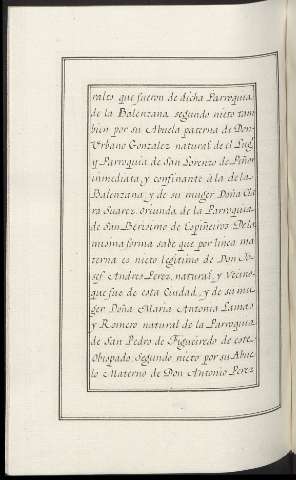 rales que fueron de dicha Parroquia
de la Balenzana, segundo nieto tam
bien por su Abuela paterna de Don
Urbano Gonzalez natural de el Lug
y Parroquia de San Lorenzo de Piñor
inmediata, y confinante á la de la
Balenzana, y de su muger Doña Cla
ra Suarez, Oriunda de la Parroquia
de San Berisimo de Espiñeiros: De la
misma forma sabe que por linea ma
terna es nieto legitimo de Don Jo-
sef Andres Perez, natural, y Vecino
que fue de esta Ciudad, y de su mu
ger Doña Maria Antonia Lamas
y Romero natural de la Parroquia
de San Pedro de Figueiredo de este
Obispado, Segundo nieto por su Abue
lo Materno de Don Antonio Perez